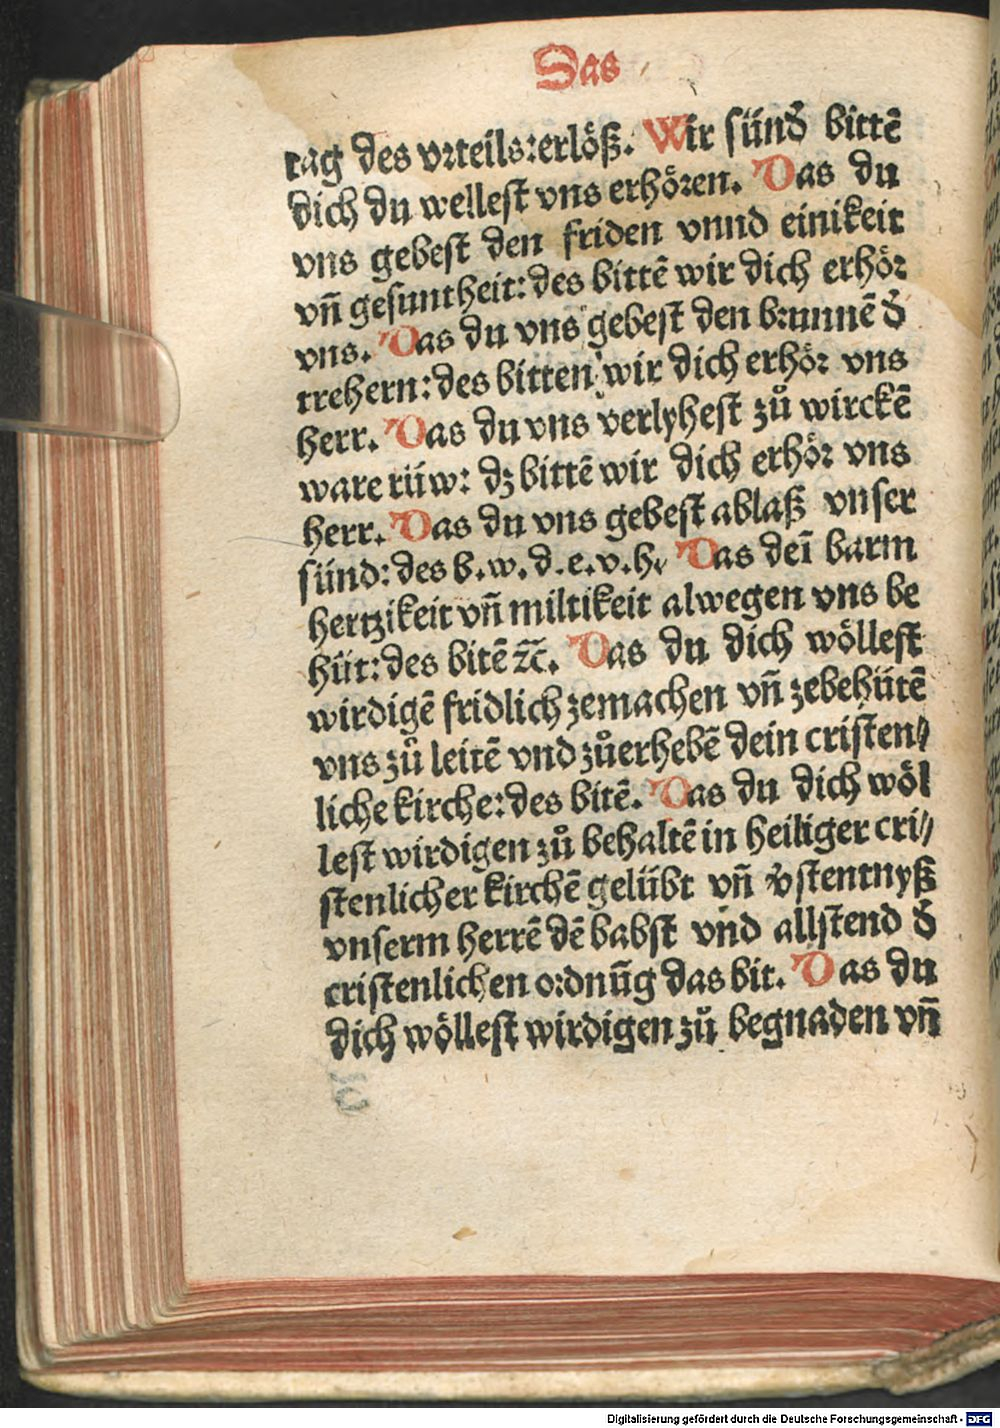 Das
tag des vrteils:erlöß. Wir sünd̕ bittē
dich du wellest vns erhören. Das du
vns gebest den friden vnnd einikeit
vñ gesuntheit:des bittē wir dich erhör
vns. Das du vns gebest den brunnē d̕
trehern:des bitten wir dich erhör vns
herr. Das du vns verlyhest zů wirckē
ware rüw: dz bittē wir dich erhör vns
herr. Das du vns gebest ablaß vnser
sünd:des b.w.d.e.v.h. Das deī barm
hertzikeit vñ miltikeit alwegen vns be
hüt:des bitē ꝛc̄. Das du dich wöllest
wirdigē fridlich zemachen vñ zebehütē
vns zů leitē vnd zůerhebē dein cristen⸗
liche kirche:des bitē. Das du dich wöl
lest wirdigen zů behaltē in heiliger cri⸗
stenlicher kirchē gelübt vñ v̕stentnyß
vnserm herrē dē babst vnd allstend d̕
cristenlichen ordnūg das bit. Das du
dich wöllest wirdigen zů begnaden vñ
Digitalisierung gefördert durch die Deutsche Forschungsgemeinschaft - DFG